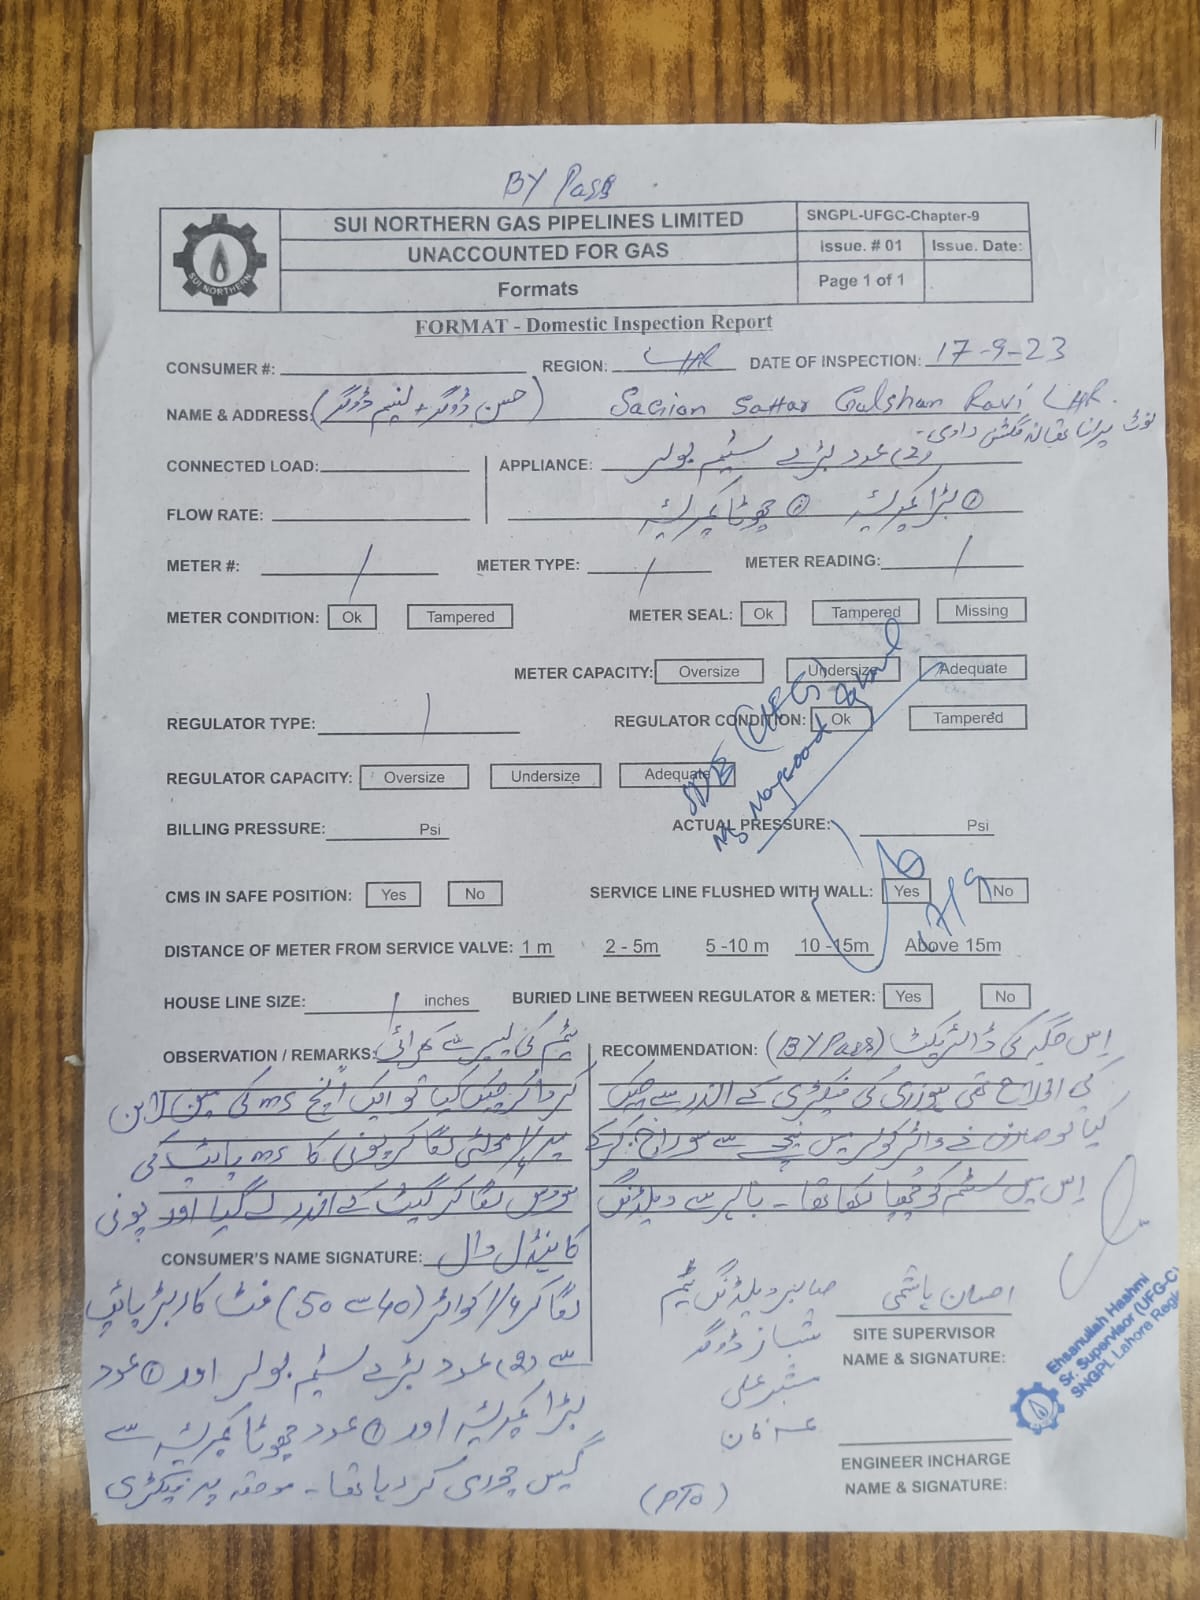 BY Pass
SUI NORTHERN GAS PIPELINES LIMITED
SNGPL-UFGC-Chapter-9
UNACCOUNTED FOR GAS
Issue. # 01
Issue. Date:
Formats
Page 1 of 1
SUI NORTHERN
FORMAT - Domestic Inspection Report
CONSUMER #: REGION: LHR DATE OF INSPECTION: 17-9-23
NAME & ADDRESS: (حسن ڈوگر + ڈوگر) Sagian Sattar Gulshan Ravi LHR.
پرانا تھانہ گلشن راوی۔
CONNECTED LOAD: APPLIANCE: (2) عدد بڑے سٹیم بوائلر
FLOW RATE: ① بڑا ① چھوٹا
METER #: / METER TYPE: / METER READING: /
METER CONDITION: Ok Tampered METER SEAL: Ok Tampered Missing
METER CAPACITY: Oversize Undersize Adequate
REGULATOR TYPE: / REGULATOR CONDITION: Ok Tampered
REGULATOR CAPACITY: Oversize Undersize Adequate
(UFG)
Maqsood
BILLING PRESSURE: Psi ACTUAL PRESSURE: / Psi
CMS IN SAFE POSITION: Yes No SERVICE LINE FLUSHED WITH WALL: Yes No
17/9
DISTANCE OF METER FROM SERVICE VALVE: 1 m 2 - 5m 5 -10 m 10 -15m Above 15m
HOUSE LINE SIZE: / inches BURIED LINE BETWEEN REGULATOR & METER: Yes No
OBSERVATION / REMARKS: ٹیم کی لیبر سے کھدائی
کروا کر چیک کیا تو ایک انچ ms کی مین لائن
پر 1/4 لگا کر پونی کا ms پائپ کی
سروس لگا کر گیٹ کے اندر لے گیا اور پونی
RECOMMENDATION: اس جگہ کی ڈائریکٹ (BY Pass)
کی اطلاع تھی ہوزری کی فیکٹری کے اندر سے چیک
کیا تو صارف نے واٹر کولر میں نیچے سے سوراخ کر کے
اس میں سسٹم کو چھپا رکھا تھا۔ باہر سے ویلڈنگ
CONSUMER'S NAME SIGNATURE: کا ہینڈل وال
لگا کر 1/4 (40 سے 50) فٹ کا ربڑ پائپ
سے (2) عدد بڑے سٹیم بوائلر اور ① عدد
بڑا اور ① عدد چھوٹا سے
گیس چوری کر رہا تھا۔ موقعہ پر فیکٹری
صابر ویلڈنگ ٹیم
شہباز ڈوگر
علی
(PTO)
احسان ہاشمی
SITE SUPERVISOR
NAME & SIGNATURE:
Ehsanullah Hashmi
Sr. Supervisor (UFG-C)
SNGPL Lahore Regi
ENGINEER INCHARGE
NAME & SIGNATURE: